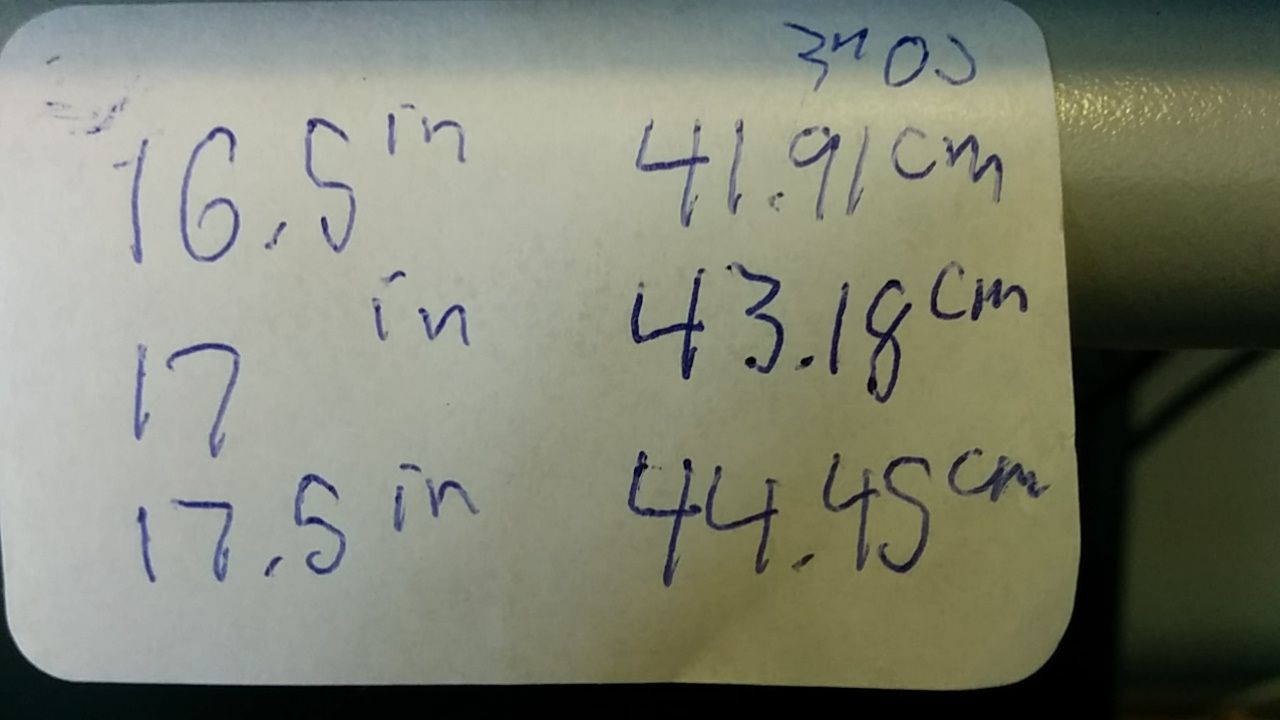 16.5 in 41.91 cm
17 in 43.18 cm
17.5 in 44.45 cm